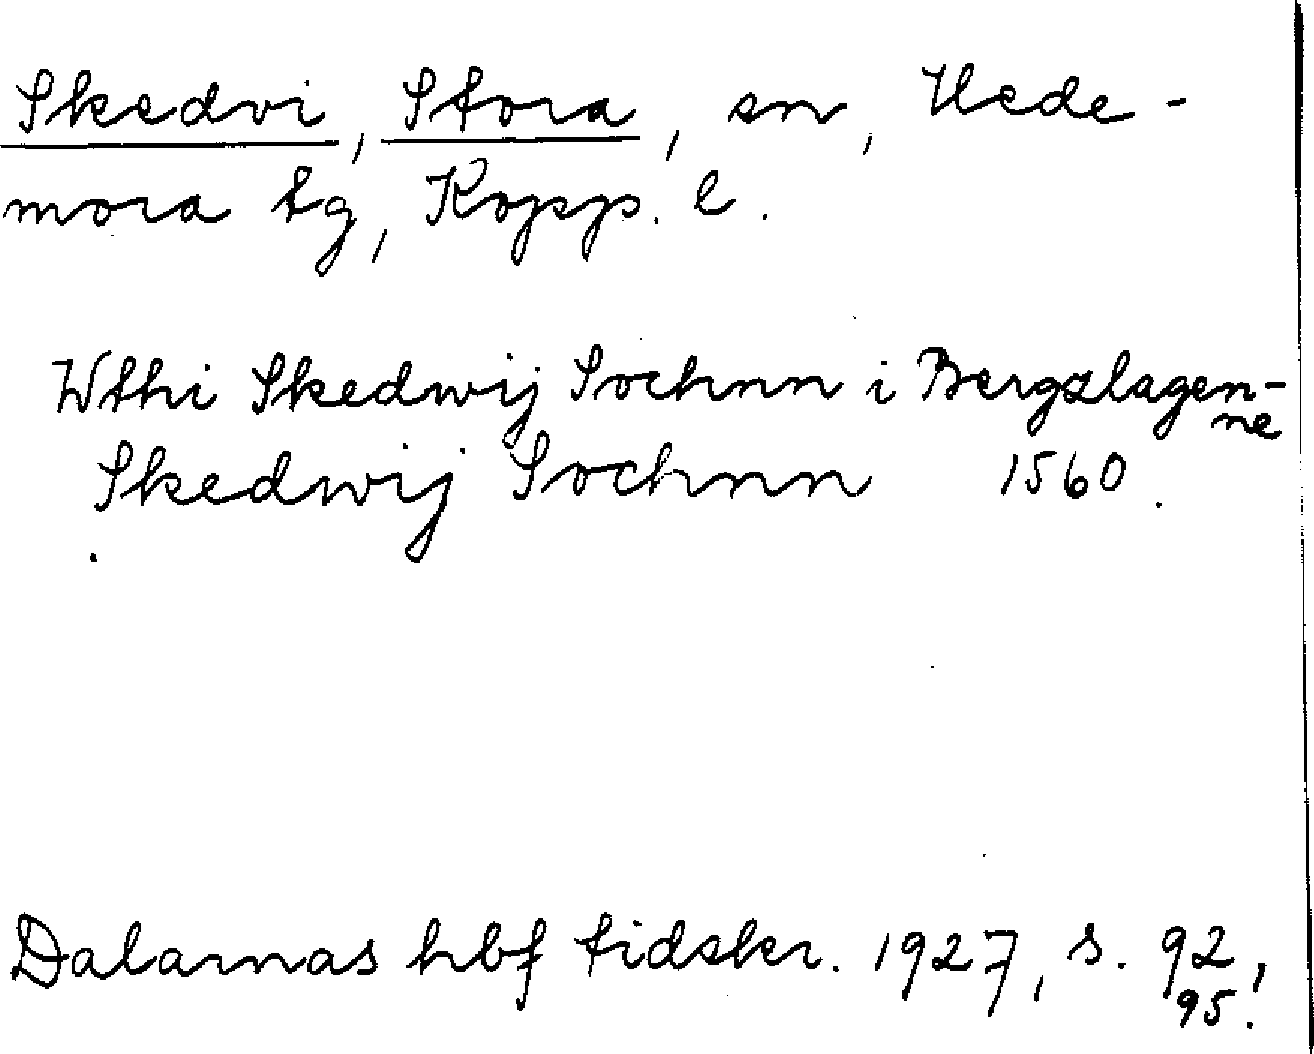 Skedvi, Stora, sn, Hede-
mora tg, Kopp. l.
Wthi Skedwij Sochnn i Bergzlagen-
ne
Skedwij Sochnn 1560.
Dalarnas hbf tidskr. 1927, s. 92,
95.